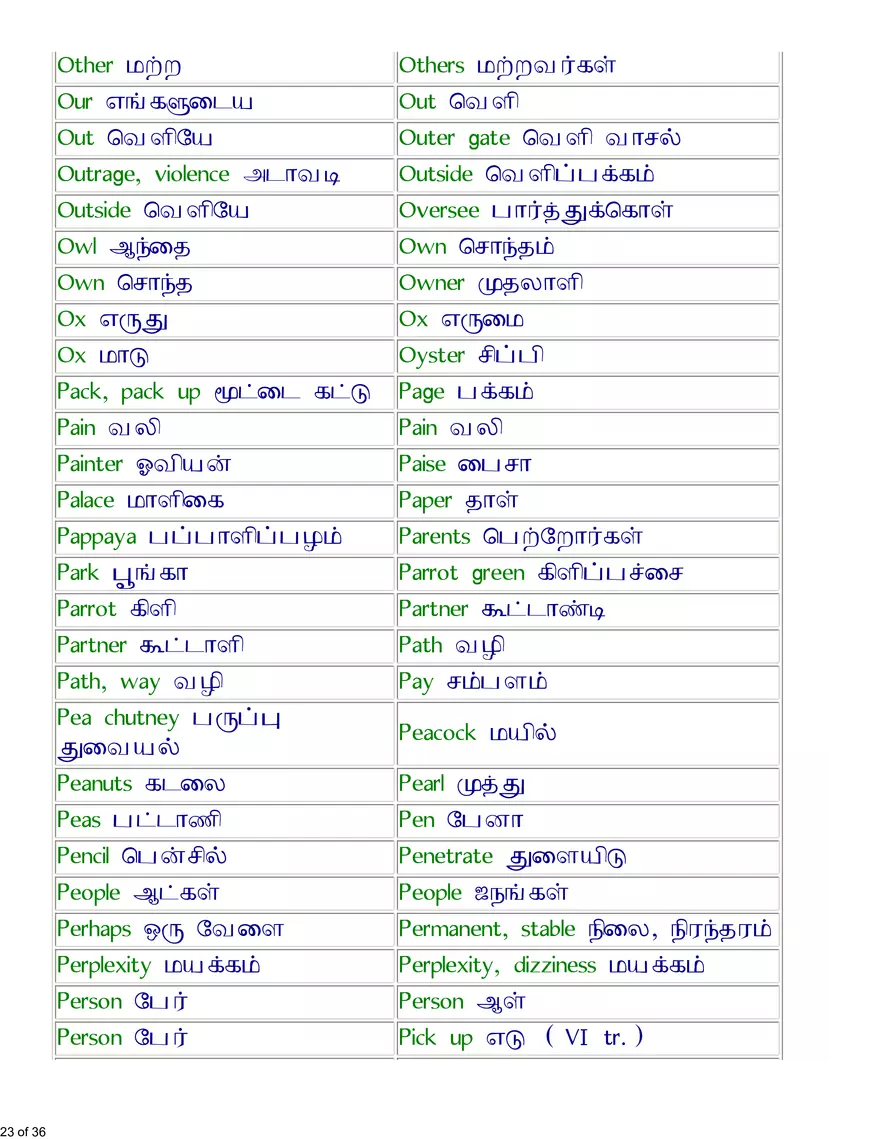 Other மற்ற
Others மற்றவர்கள்
Our எங்களுடைய
Out வெளி
Out வெளியே
Outer gate வெளி வாசல்
Outrage, violence அடாவடி
Outside வெளிப்பக்கம்
Outside வெளியே
Oversee பார்த்துக்கொள்
Owl ஆந்தை
Own சொந்தம்
Own சொந்த
Owner முதலாளி
Ox எருது
Ox எருமை
Ox மாடு
Oyster சிப்பி
Pack, pack up மூட்டை கட்டு
Page பக்கம்
Pain வலி
Pain வலி
Painter ஓவியன்
Paise பைசா
Palace மாளிகை
Paper தாள்
Pappaya பப்பாளிப்பழம்
Parents பெற்றோர்கள்
Park பூங்கா
Parrot green கிளிப்பச்சை
Parrot கிளி
Partner கூட்டாண்டி
Partner கூட்டாளி
Path வழி
Path, way வழி
Pay சம்பளம்
Pea chutney பருப்பு
துவையல்
Peacock மயில்
Peanuts கடலை
Pearl முத்து
Peas பட்டாணி
Pen பேனா
Pencil பென்சில்
Penetrate துளையிடு
People ஆட்கள்
People ஜநங்கள்
Perhaps ஒரு வேளை
Permanent, stable நிலை, நிரந்தரம்
Perplexity மயக்கம்
Perplexity, dizziness மயக்கம்
Person பேர்
Person ஆள்
Person பேர்
Pick up எடு ( VI tr. )
23 of 36